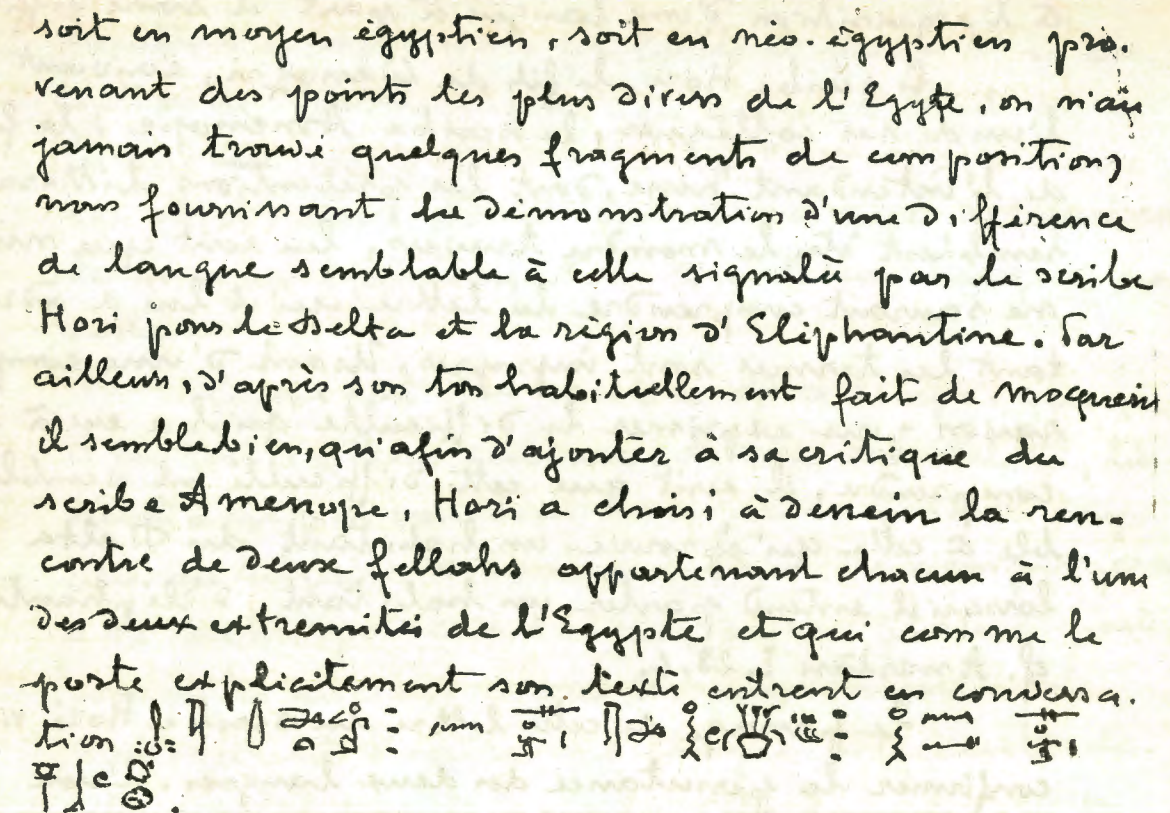 soit en moyen égyptien, soit en néo-égyptien pro-
venant des points les plus divers de l'Egypte, on n'ait
jamais trouvé quelques fragments de compositions
nous fournissant la démonstration d'une différence
de langue semblable à celle signalée par le scribe
Hori pour le Delta et la région d'Eléphantine. Par
ailleurs, d'après son ton habituellement fait de moquerie
il semble bien, qu'afin d'ajouter à sa critique du
scribe Amenope, Hori a choisi à dessein la ren-
contre de deux fellahs appartenant chacun à l'une
des deux extremités de l'Egypte et qui comme le
porte explicitement son texte entrent en conversa-
tion